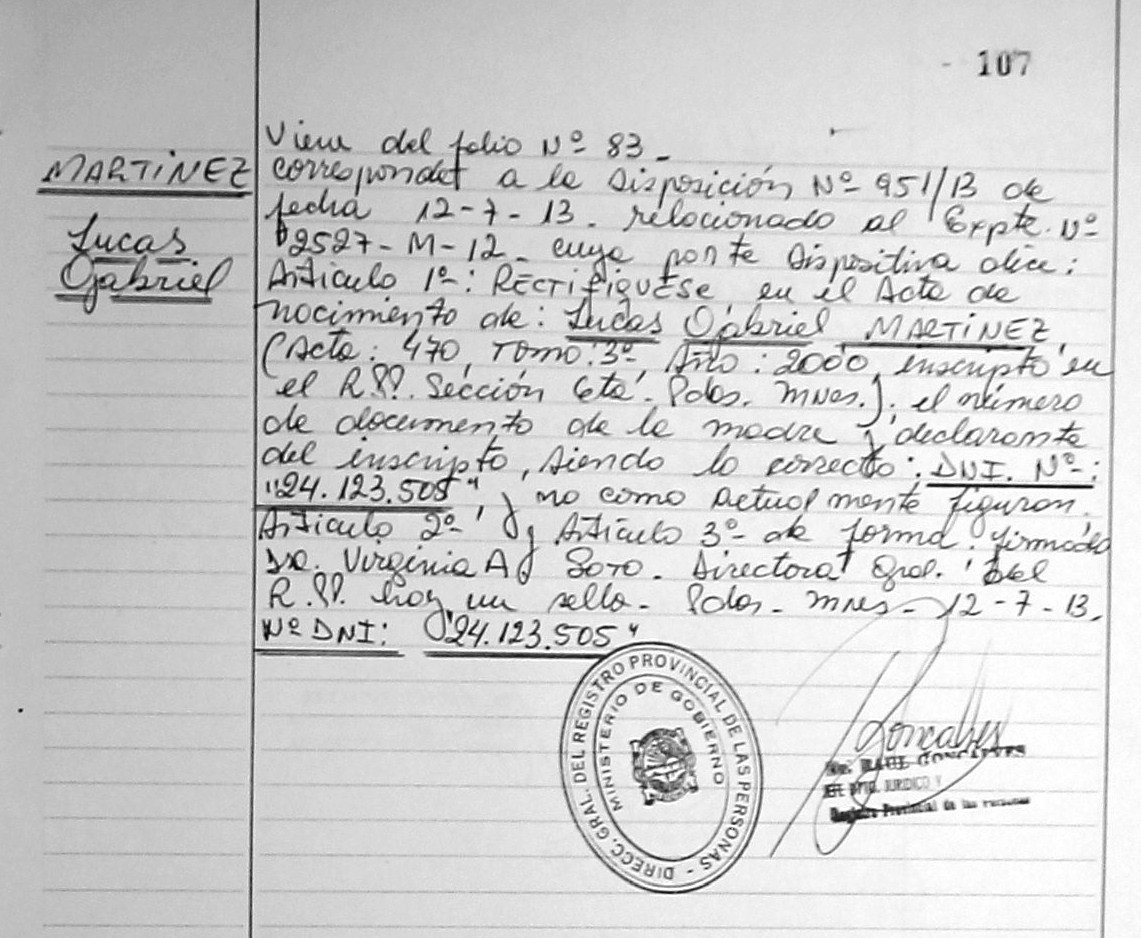 - 107
Viene del folio Nº 83 -
MARTiNEZ
Lucas
Gabriel
corresponde a la Disposición Nº 951/13 de
fecha 12-7-13. relacionado al Expte. Nº
2527-M-12- cuya parte dispositiva dice:
Artículo 1º: RECTIFIQUESE, en el Acta de
nacimiento de: Lucas Gabriel MARTINEZ,
(Acta: 470, Tomo: 3º, Año: 2000, inscripto en
el R.PP. Sección 6ta. Pdas. Mnes.); el número
de documento de la madre y declarante
del inscripto, siendo lo correcto: DNI. Nº:
"24.123.505" y no como actualmente figuran.
Artículo 2º y Artículo 3º de forma. firmado
Dra. Virginia A. Soto. Directora Gral. del
R.PP. hay un sello - Pdas - Mnes - 12-7-13.
Nº DNI: "24.123.505"
DIRECC. GRAL. DEL REGISTRO PROVINCIAL DE LAS PERSONAS -
MINISTERIO DE GOBIERNO
Goncalves
RAUL GONCALVES
JEFE DPTO. JURIDICO Y
Registro Provincial de las Personas